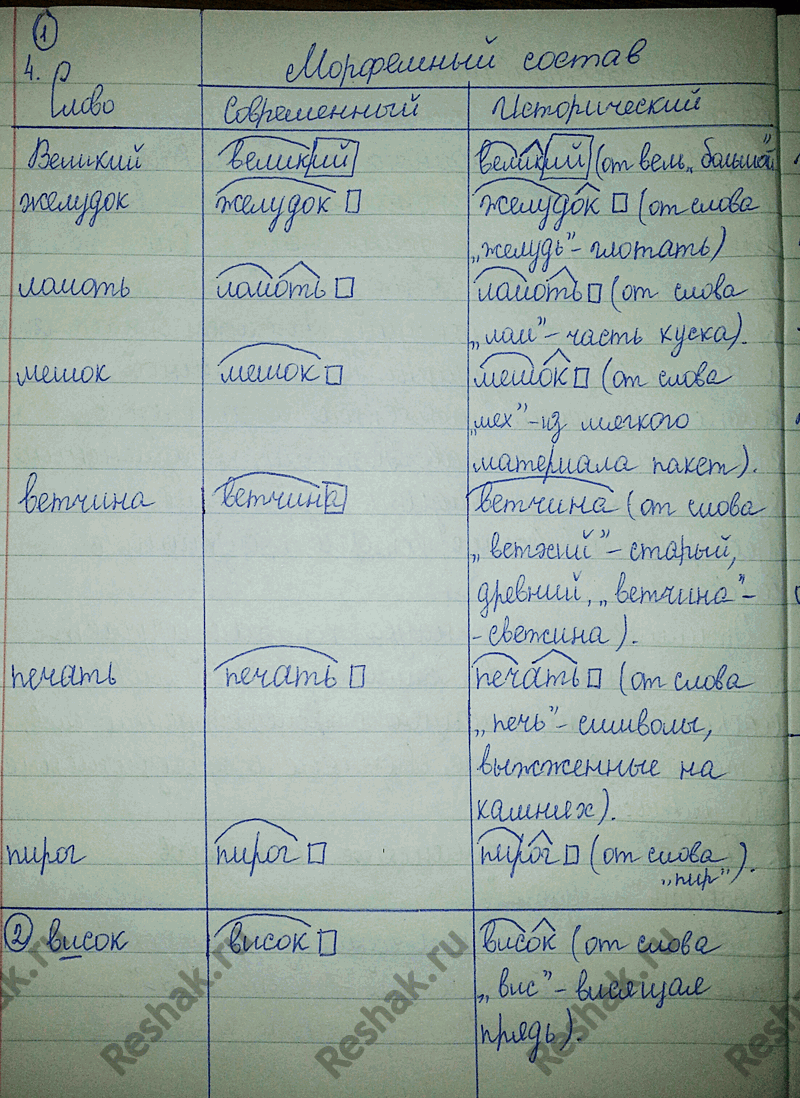 1
4. Слово Морфемный состав
Современный Исторический
Великий великий великий (от вель „большой"
желудок желудок желудок (от слова
„желудь"- глотать)
ломоть ломоть ломоть (от слова
„лом"- часть куска).
мешок мешок мешок (от слова
„мех"-из мягкого
материала пакет).
ветчина ветчина ветчина (от слова
„ветхий"- старый,
древний, „ветчина"-
-свежина).
печать печать печать (от слова
„печь"- символы,
выжженные на
камнях).
пирог пирог пирог (от слова
„пир").
2 висок висок висок (от слова
„вис"- висящая
прядь).
Reshak.ru
Reshak.ru
Reshak.ru